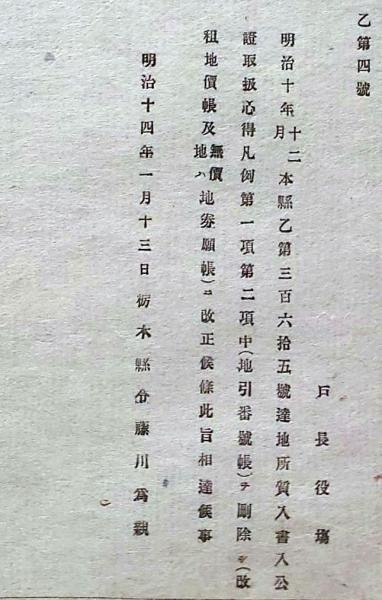 乙第四號
戸長役塲
明治十年十二月本縣乙第三百六拾五號達地所質入書入公
證取扱心得凡例第一項第二項中(地引番號帳)ヲ刪除シ(改
租地價帳及無價地ハ地券願帳)ニ改正候條此旨相達候事
明治十四年一月十三日栃木縣令藤川爲親